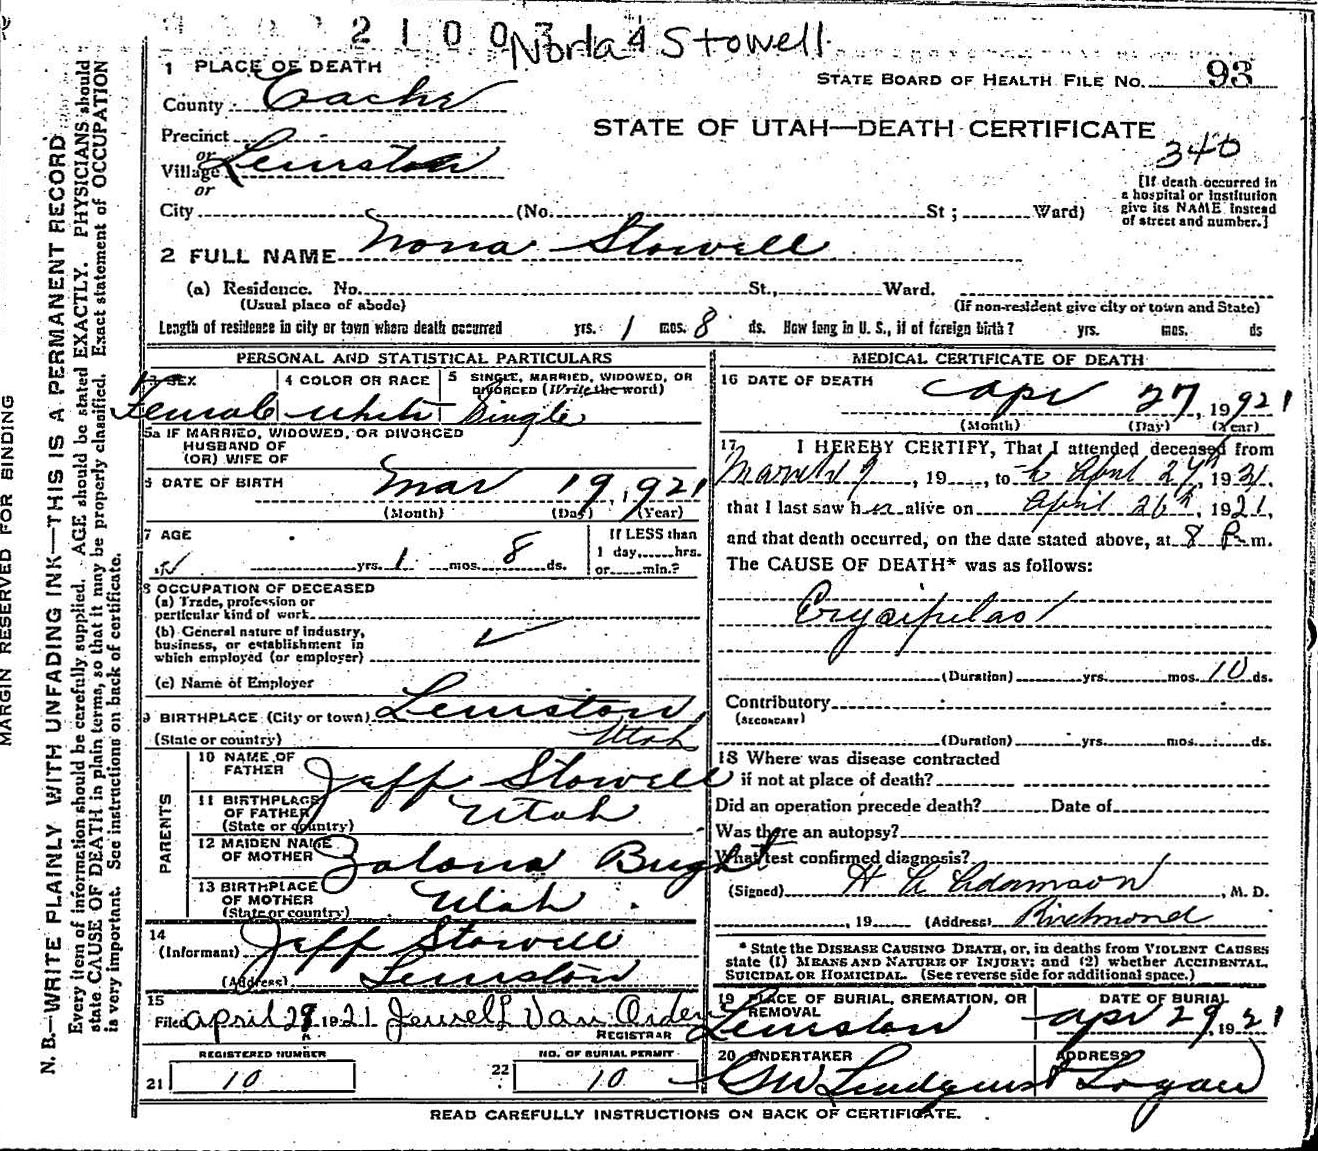 2 1 0 0 7 4
Norla Stowell
1 PLACE OF DEATH
STATE BOARD OF HEALTH FILE No. 93
County Cache
Precinct
STATE OF UTAH—DEATH CERTIFICATE
or
340
Village Lewiston
or
[If death occurred in
a hospital or institution
give its NAME instead
of street and number.]
City (No. St ; Ward)
2 FULL NAME Nona Stowell
(a) Residence. No. St., Ward.
(Usual place of abode) (If non-resident give city or town and State)
Length of residence in city or town where death occurred yrs. 1 mos. 8 ds. How long in U. S., if of foreign birth? yrs. mos. ds
PERSONAL AND STATISTICAL PARTICULARS
3 SEX 4 COLOR OR RACE 5 SINGLE, MARRIED, WIDOWED, OR
DIVORCED (Write the word)
Female White Single
5a IF MARRIED, WIDOWED, OR DIVORCED
HUSBAND OF
(OR) WIFE OF
6 DATE OF BIRTH Mar 19, 1921
(Month) (Day) (Year)
7 AGE
yrs. 1 mos. 8 ds.
If LESS than
1 day, hrs.
or min.?
8 OCCUPATION OF DECEASED
(a) Trade, profession or
particular kind of work
(b) General nature of industry,
business, or establishment in
which employed (or employer)
(c) Name of Employer
9 BIRTHPLACE (City or town) Lewiston
(State or country) Utah
PARENTS
10 NAME OF
FATHER Jeff Stowell
11 BIRTHPLACE
OF FATHER Utah
(State or country)
12 MAIDEN NAME
OF MOTHER Zalona Bright
13 BIRTHPLACE
OF MOTHER Utah
(State or country)
14
(Informant) Jeff Stowell
(Address) Lewiston
15
Filed April 29 1921 Jewell Van Orden
REGISTRAR
REGISTERED NUMBER NO. OF BURIAL PERMIT
21 10 22 10
MEDICAL CERTIFICATE OF DEATH
16 DATE OF DEATH Apr 27, 1921
(Month) (Day) (Year)
17 I HEREBY CERTIFY, That I attended deceased from
March 9, 19 , to April 27th, 1921.
that I last saw her alive on April 26th, 1921,
and that death occurred, on the date stated above, at 8 P. m.
The CAUSE OF DEATH* was as follows:
Erysipelas
(Duration) yrs. mos. 10 ds.
Contributory
(SECONDARY)
(Duration) yrs. mos. ds.
18 Where was disease contracted
if not at place of death?
Did an operation precede death? Date of
Was there an autopsy?
What test confirmed diagnosis?
(Signed) Adamson, M. D.
, 19 (Address) Richmond
* State the DISEASE CAUSING DEATH, or, in deaths from VIOLENT CAUSES
state (1) MEANS AND NATURE OF INJURY; and (2) whether ACCIDENTAL,
SUICIDAL OR HOMICIDAL. (See reverse side for additional space.)
19 PLACE OF BURIAL, CREMATION, OR
REMOVAL
DATE OF BURIAL
Lewiston Apr 29, 1921
20 UNDERTAKER ADDRESS
Lindquist Logan
READ CAREFULLY INSTRUCTIONS ON BACK OF CERTIFICATE.
MARGIN RESERVED FOR BINDING
N. B.—WRITE PLAINLY WITH UNFADING INK—THIS IS A PERMANENT RECORD
Every item of information should be carefully supplied. AGE should be stated EXACTLY. PHYSICIANS should
state CAUSE OF DEATH in plain terms, so that it may be properly classified. Exact statement of OCCUPATION
is very important. See instructions on back of certificate.